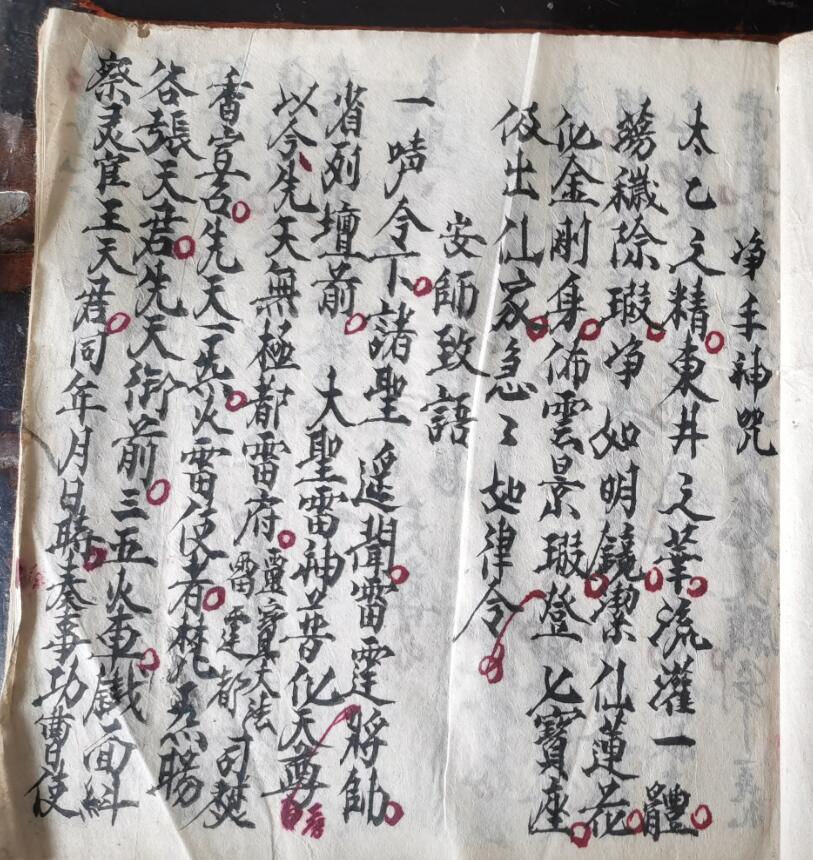 净手神咒
太乙之精東井之華流灌一體
蕩穢除瑕净如明鏡潔仙蓮花
化金剛身佈雲景瑕登七寶座
伋出仙家急〻如律令
安師致語
一声令下諸聖遥聞雷霆將帥
省列壇前大聖雷神普化天尊
以今先天無極都雷府靈寶大法雷霆都司焚
香宣召先天一炁火雷使者梵炁腸
谷張天君先天衙前三五火車鉄面糾
察灵官王天君同年月日時奏事功曹使